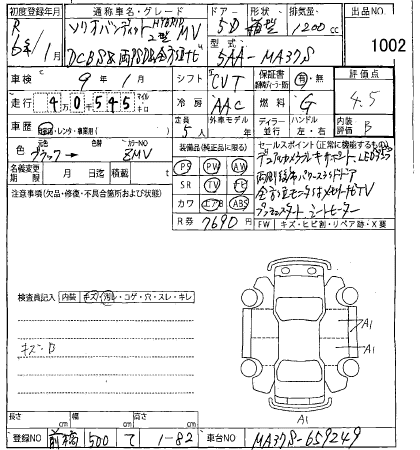 初度登録年月 通称車名・グレード ドアー 形状 排気量 出品NO
R 6年/1月 ソリオバンディット HYBRID MV 2型 5D 箱型 1200cc
DCBS 全方位ナビ 型式 5AA-MA37S 1002
車検 9年1月 シフト CVT 保証書 有・無 評価点
走行 40545 マイル キロ 冷房 AAC 燃料 G 4.5
車歴 自家用・レンタ・事業用( ) 定員 5人 外車モデル ディーラー 並行 ハンドル 左・右 内装評価 B
色 元色 ブラック→ 色替 カラーNO ZMV 装備品(純正品に限る) セールスポイント(正常に機能するもの)
名義変更期限 月 日迄 積載 t PS PW AW デュアルカメラブレーキサポート LEDライト
注意事項(欠品・修復・不具合箇所および状態) SR TV ナビ 両側電動パワースライドドア
カワ エアB ABS 全方位モニター付メモリーナビTV
R券 7690円 プッシュスタート シートヒーター
FW キズ・ヒビ割・リペア跡・X要
検査員記入 内装 キズ・汚れ・コゲ・穴・スレ・キレ
キズ・B
A1
A1
A1
長さ cm 幅 cm 高さ cm
登録NO 前橋 500 て 1-82 車台NO MA37S-659249